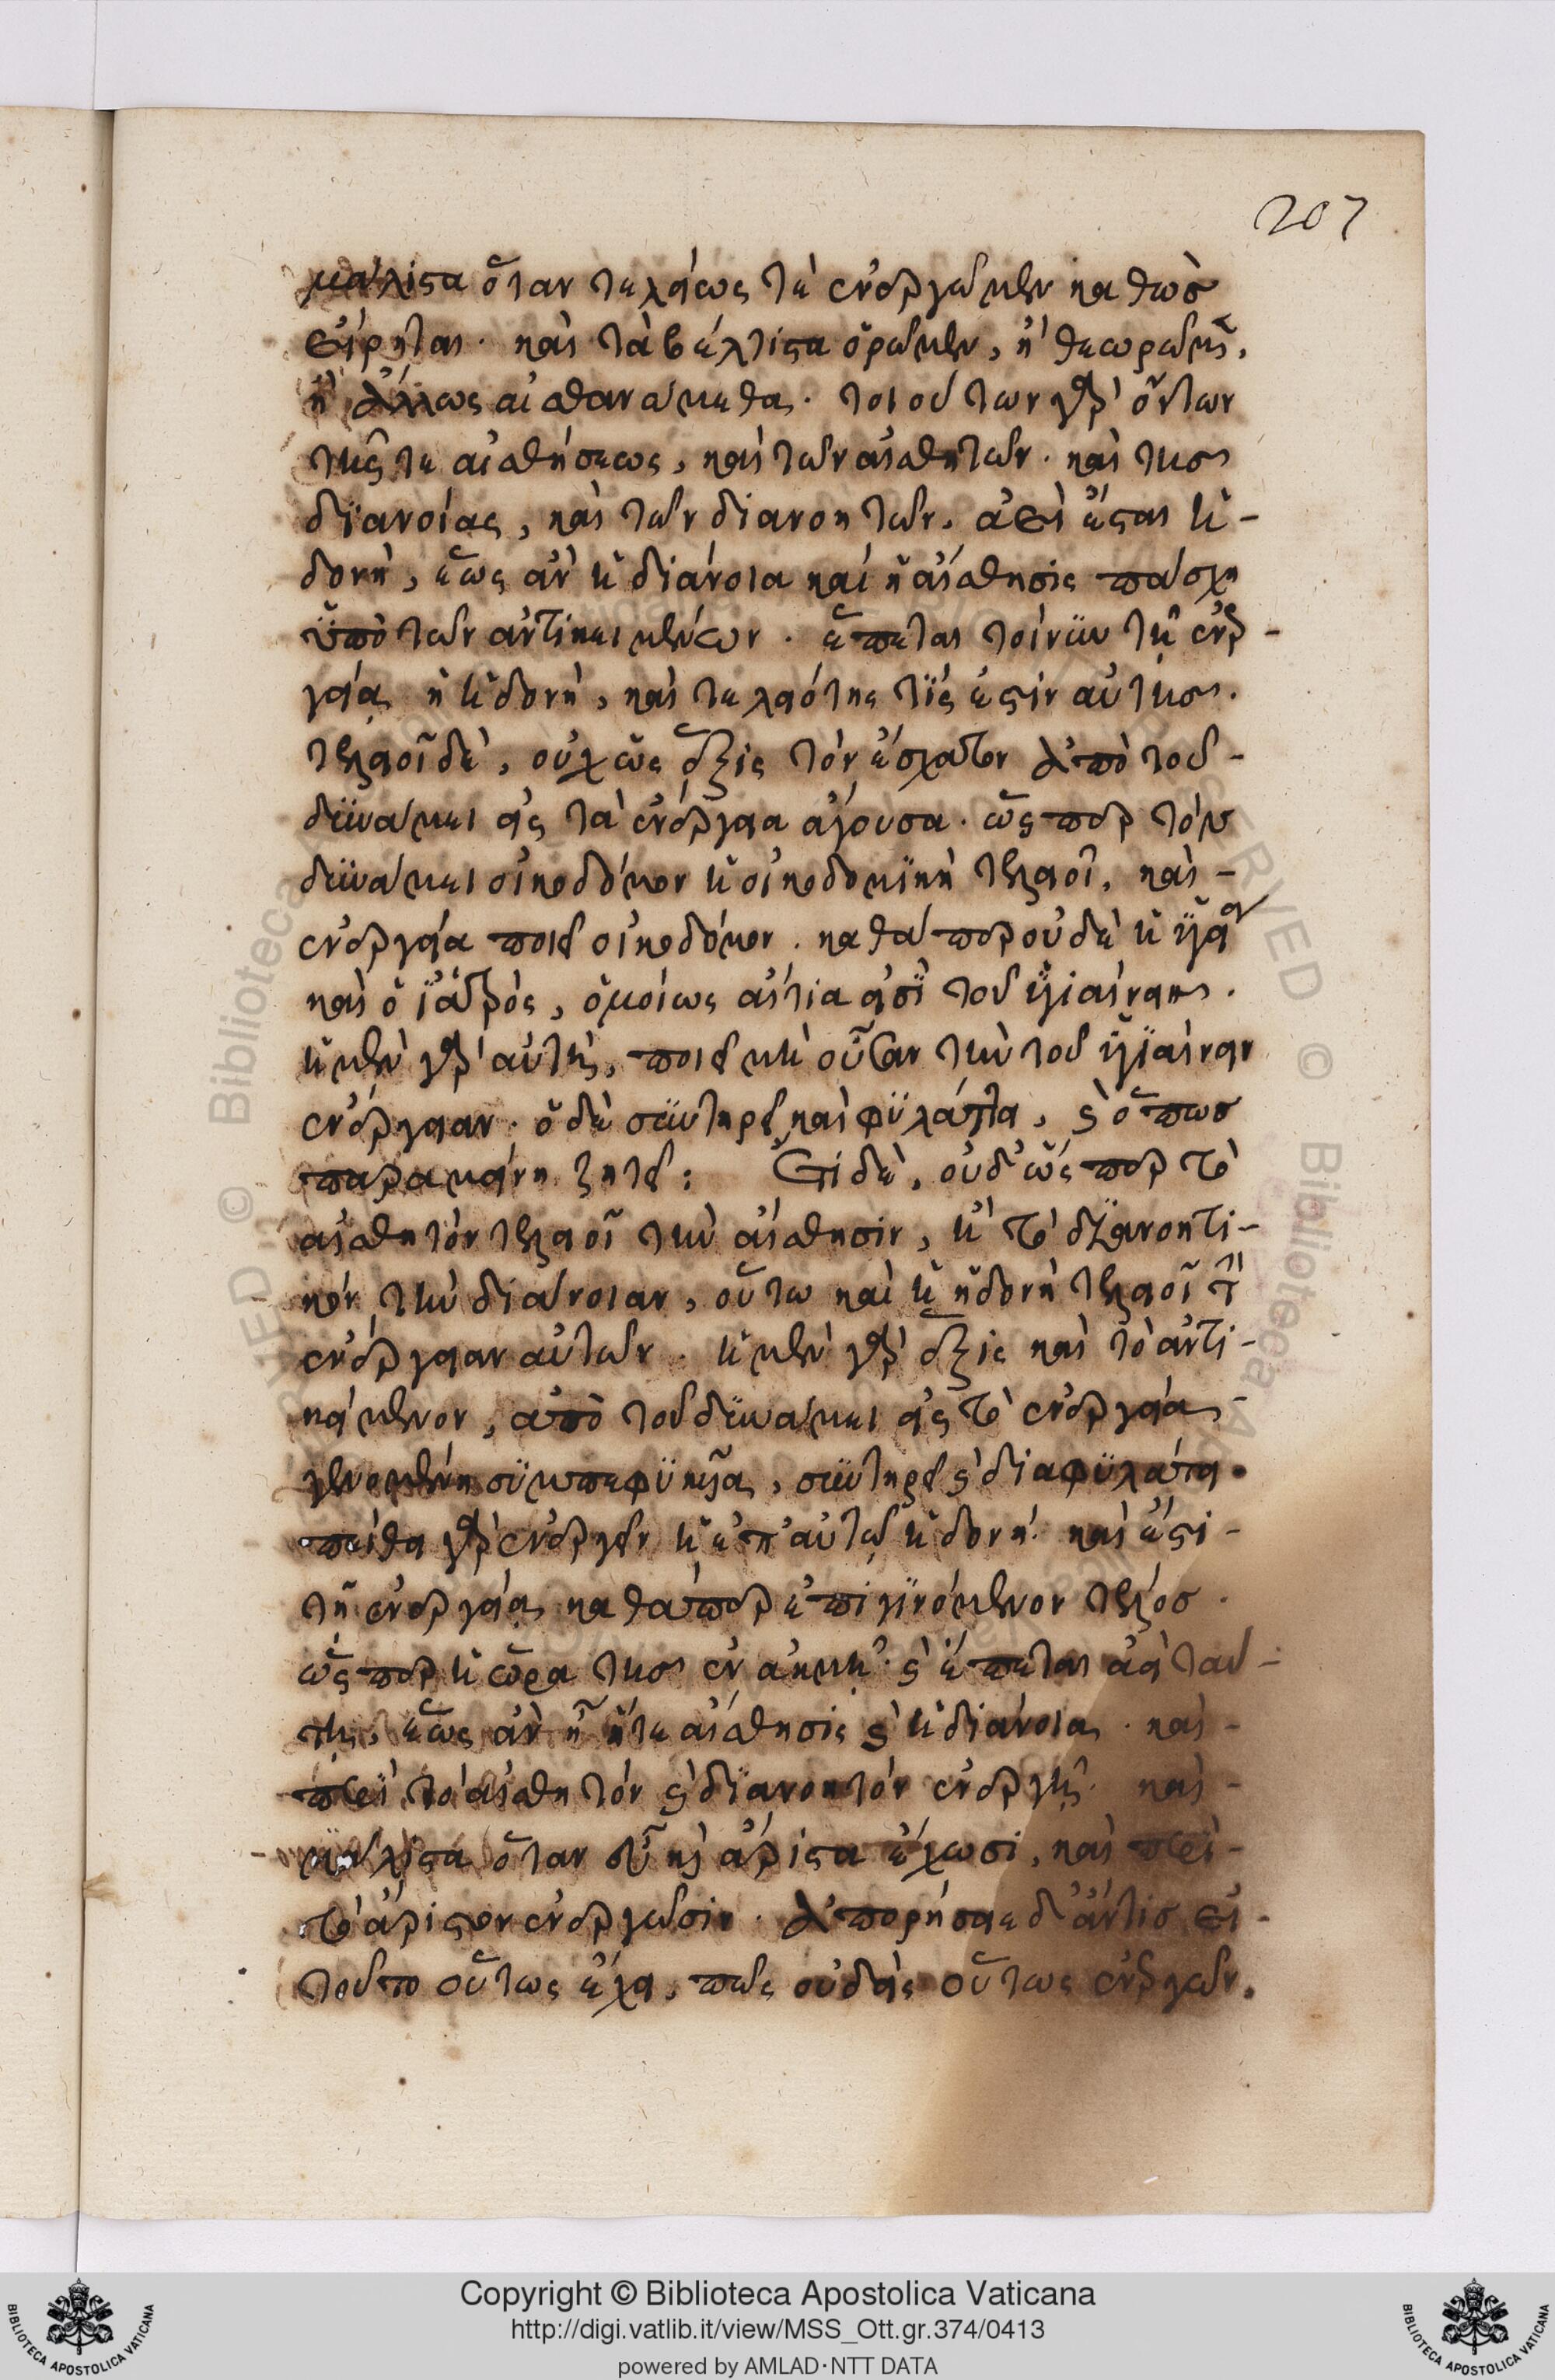 207
μάλιστα ὅταν τελείως τὲ ἐνεργῶμεν καθὼσ
εἴρηται· καὶ τὰ βέλτιστα ὁρῶμεν, ἢ θεωρῶμεν,
ἢ ἄλλως αἰσθανώμεθα· τοιούτων γὰρ ὄντων
τῆς τε αἰσθήσεως, καὶ τῶν αἰσθητῶν· καὶ τῆσ
διανοίας, καὶ τῶν διανοητῶν. ἀεὶ ἔσται ἡ-
δονὴ, ἕως ἂν ἡ διάνοια καὶ ἡ αἴσθησις πάσχη
ὑπὸ τῶν ἀντικειμένων· ἕπεται τοίνυν τῇ ἐνερ-
γείᾳ ἡ ἡδονή, καὶ τελειότης τίς ἐστὶν αὐτῆσ.
τελειοῖ δὲ, οὐχ ὡς ἕξις τὸν ἔσχατον ἀπὸ τοῦ-
δυνάμει εἰς τὰ ἐνέργεια ἄγουσα· ὥσπερ τὸν
δυνάμει οἰκοδόμον ἡ οἰκοδομικὴ τελειοῖ, καὶ-
ἐνεργεία ποιεῖ οἰκοδόμον· καθάπερ οὐδὲ ἡ ὑγεία
καὶ ὁ ἰατρὸς, ὁμοίως αἴτια εἰσὶ τοῦ ὑγιαίνειν.
ἡ μὲν γὰρ αὐτὴ, ποιεῖ μὴ οὖσαν τὴν τοῦ ὑγιαίνειν
ἐνέργειαν· ὁ δὲ συντηρεῖ καὶ φυλάττει, καὶ ὅπωσ
παραμείνη ζητεῖ: Εἰ δὲ, οὐδ' ὥσπερ τὸ
αἰσθητὸν τελειοῖ τὴν αἴσθησιν, ἢ τὸ διανοητι-
κὸν τὴν διάνοιαν, οὕτω καὶ ἡ ἡδονὴ τελειοῖ τὴν
ἐνέργειαν αὐτῶν· ἡ μὲν γὰρ ἕξις καὶ τὸ ἀντι-
κείμενον, ἀπὸ τοῦ δυνάμει εἰς τὸ ἐνεργείᾳ-
γενομένη συμπεφυκῖα, συντηρεῖ καὶ διαφυλάττει.
πείθει γὰρ ἐνεργεῖν ἡ ἐπ' αὐτῷ ἡδονή· καὶ ἔστι-
τῇ ἐνεργείᾳ καθάπερ ἐπιγινόμενον τέλοσ.
ὥσπερ ἡ ὥρα τῆσ ἐν ἀκμῇ· καὶ ἕπεται ἀεὶ ταύ-
τῃ, ἕως ἂν ἦ ἥτε αἴσθησις καὶ ἡ διάνοια· καὶ-
περὶ τὸ αἰσθητὸν καὶ διανοητὸν ἐνεργῇ· καὶ-
μάλιστα ὅταν ἄριστα ἔχωσι, καὶ περὶ-
τὸ ἄριστον ἐνεργῶσιν· ἀπορήσειε δ' ἄντισ εἰ-
τοῦτο οὕτως ἔχει, πῶς οὐδεὶς οὕτως ἐνεργῶν.
Copyright © Biblioteca Apostolica Vaticana
http://digi.vatlib.it/view/MSS_Ott.gr.374/0413
powered by AMLAD·NTT DATA